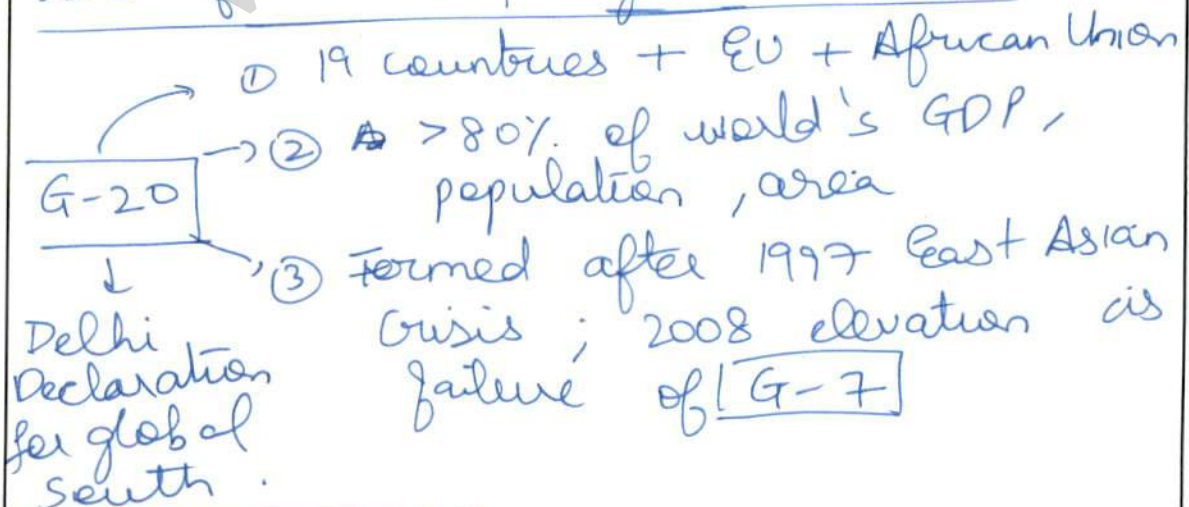 ① 19 countries + EU + African Union
G-20
② >80% of world's GDP,
population, area
③ Formed after 1997 East Asian
Crisis ; 2008 elevation is
failure of G-7
Delhi
Declaration
for global
south.